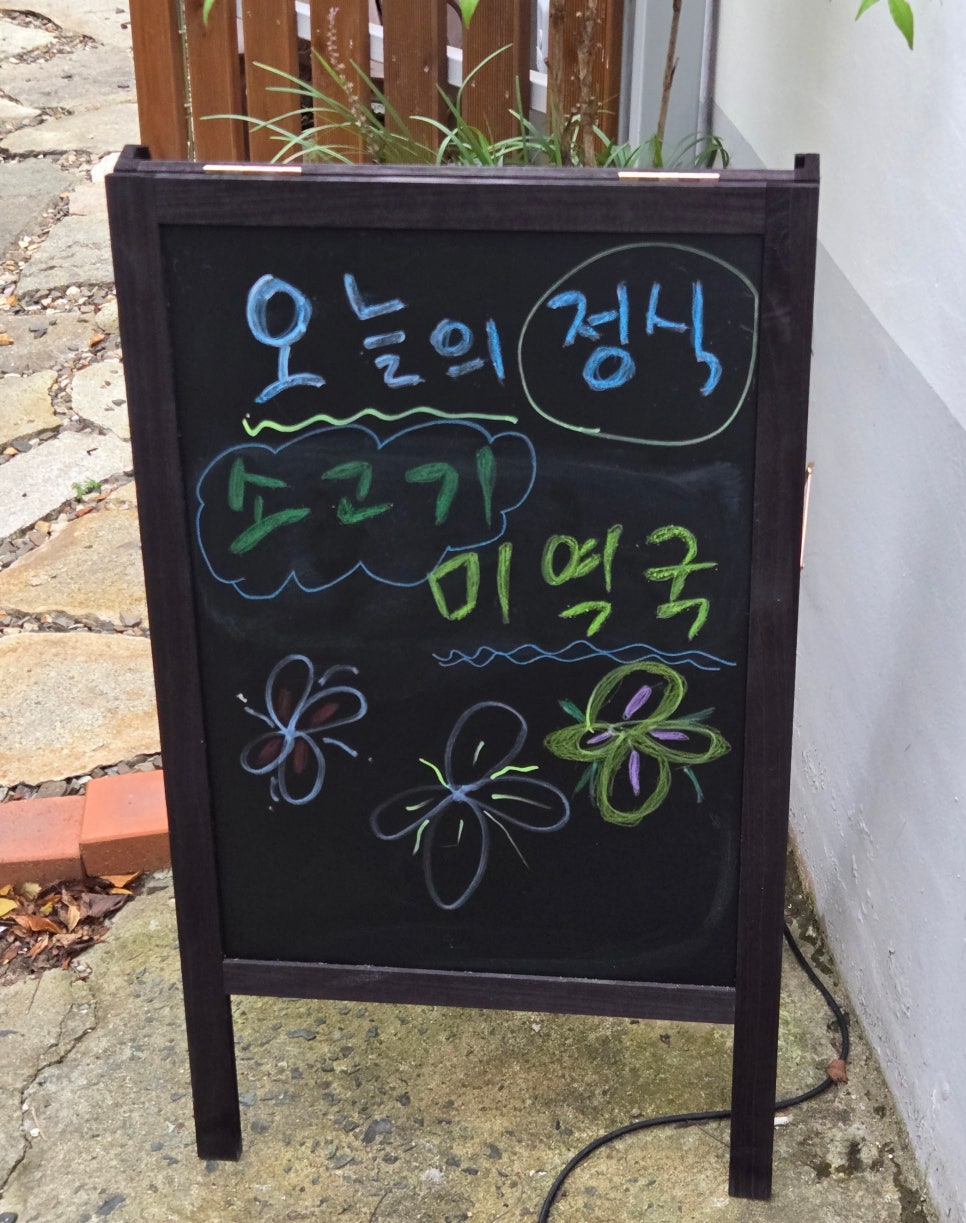 오늘의 정식
소고기
미역국